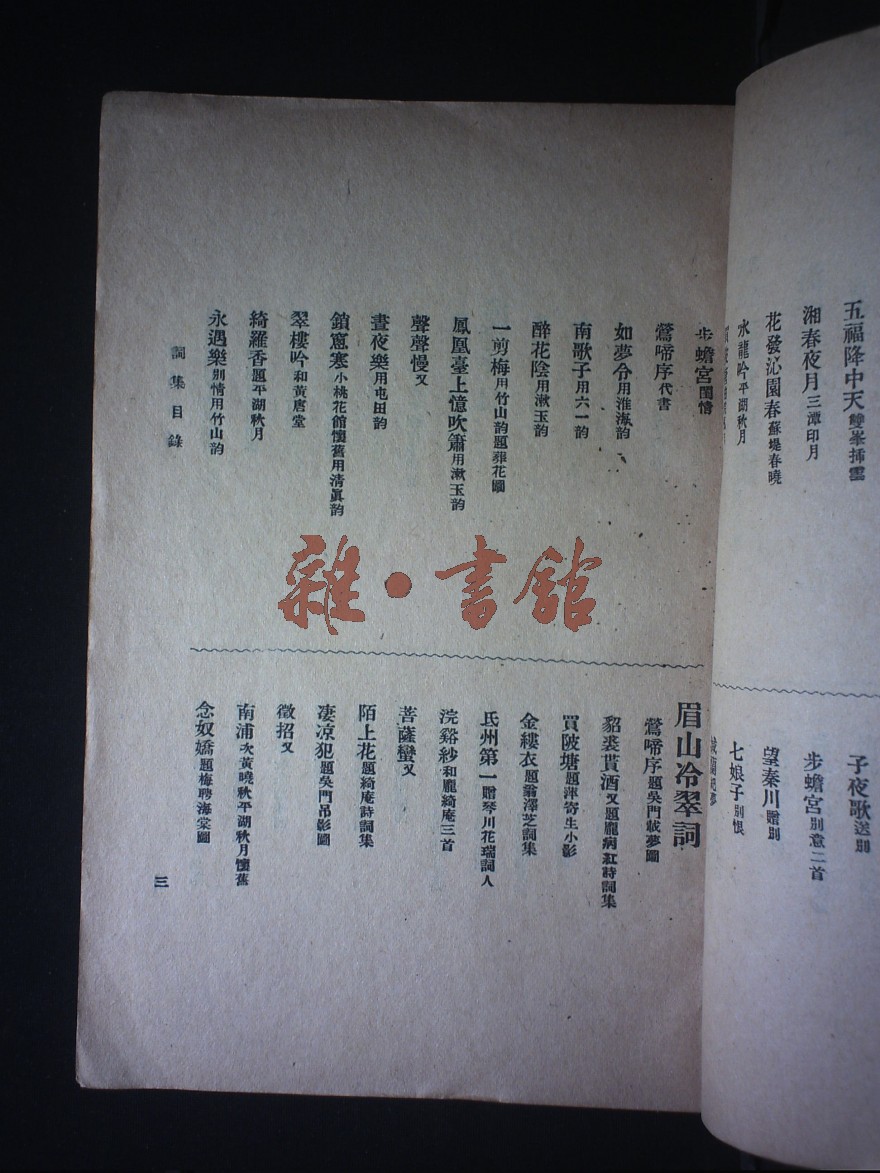 五福降中天雙峯插雲
湘春夜月三潭印月
花發沁園春蘇堤春曉
水龍吟平湖秋月
子夜歌送別
步蟾宮別意二首
望秦川贈別
七娘子別恨
步蟾宮閨情
鶯啼序代書
如夢令用淮海韵
南歌子用六一韵
醉花陰用漱玉韵
一剪梅用竹山韵題葬花圖
鳳凰臺上憶吹簫用漱玉韵
聲聲慢又
晝夜樂用屯田韵
鎖窻寒小桃花館懷舊用清眞韵
翠樓吟和黃唐堂
綺羅香題平湖秋月
永遇樂別情用竹山韵
眉山冷翠詞
鶯啼序題吳門載夢圖
貂裘貰酒又題龐病紅詩詞集
買陂塘題萍寄生小影
金縷衣題翁澤芝詞集
氐州第一贈琴川花瑞詞人
浣谿紗和龐綺庵三首
菩薩蠻又
陌上花題綺庵詩詞集
凄凉犯題吳門吊影圖
徵招又
南浦次黃曉秋平湖秋月懷舊
念奴嬌題梅聘海棠圖
詞集目錄
三
雜·書館